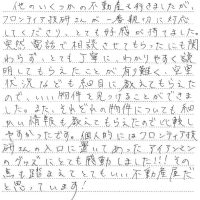 他のいくつかの不動産も行きましたが、
フロンティア技研さんが一番親切に対応
してくださり、とても好感が持てました。
突然電話で相談させてもらったにも関
わらず、とても丁寧に、わかりやすく説
明してもらえたことが有り難く、空室
状況なども細目に教えてもらえた
ので、いい物件を見つけることができま
した。また、それぞれの物件についても細
かい情報も教えてもらえたので比較し
やすかったです。個人的にはフロンティア技
研さんの入口に置いてあったアイアンマン
のグッズにとても感動しました!!!その
点も踏まえてとてもいい不動産屋だ
と思っています!